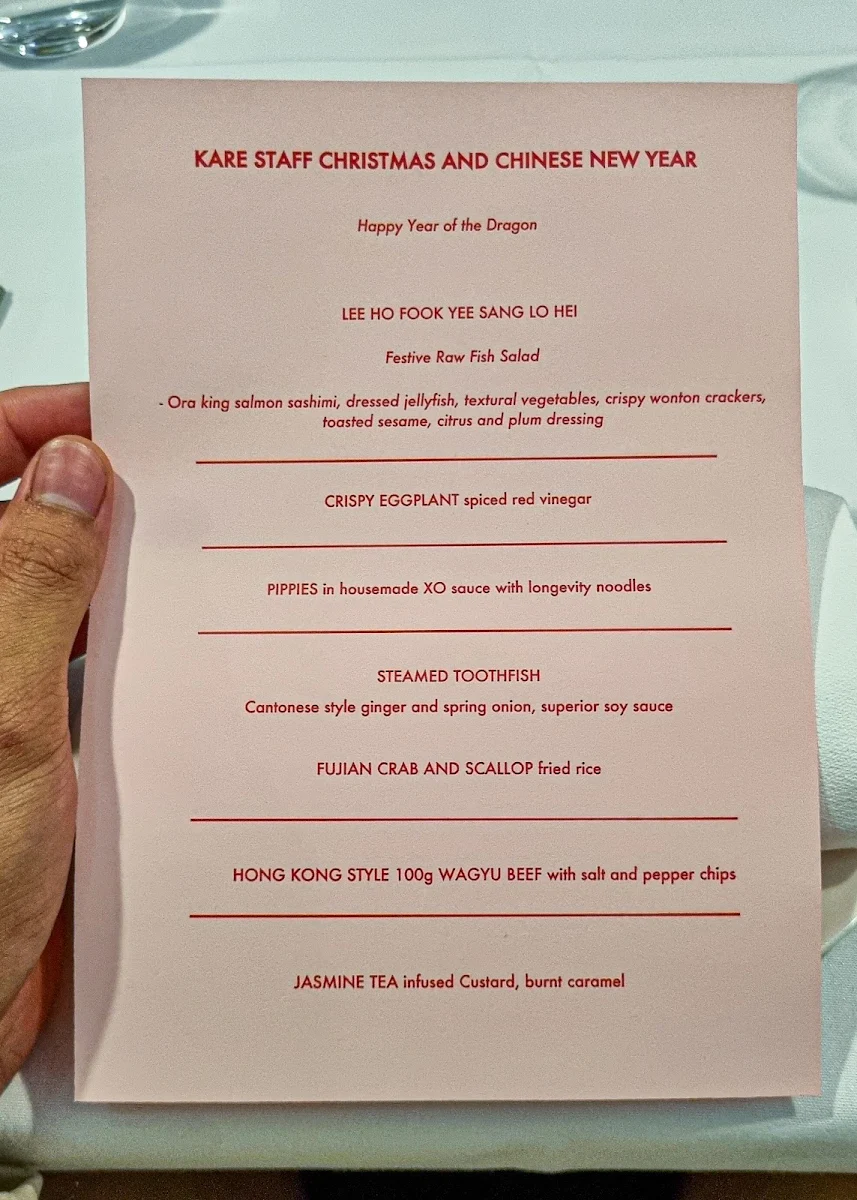 KARE STAFF CHRISTMAS AND CHINESE NEW YEAR
Happy Year of the Dragon
LEE HO FOOK YEE SANG LO HEI
Festive Raw Fish Salad
- Ora king salmon sashimi, dressed jellyfish, textural vegetables, crispy wonton crackers,
toasted sesame, citrus and plum dressing
CRISPY EGGPLANT spiced red vinegar
PIPPIES in housemade XO sauce with longevity noodles
STEAMED TOOTHFISH
Cantonese style ginger and spring onion, superior soy sauce
FUJIAN CRAB AND SCALLOP fried rice
HONG KONG STYLE 100g WAGYU BEEF with salt and pepper chips
JASMINE TEA infused Custard, burnt caramel